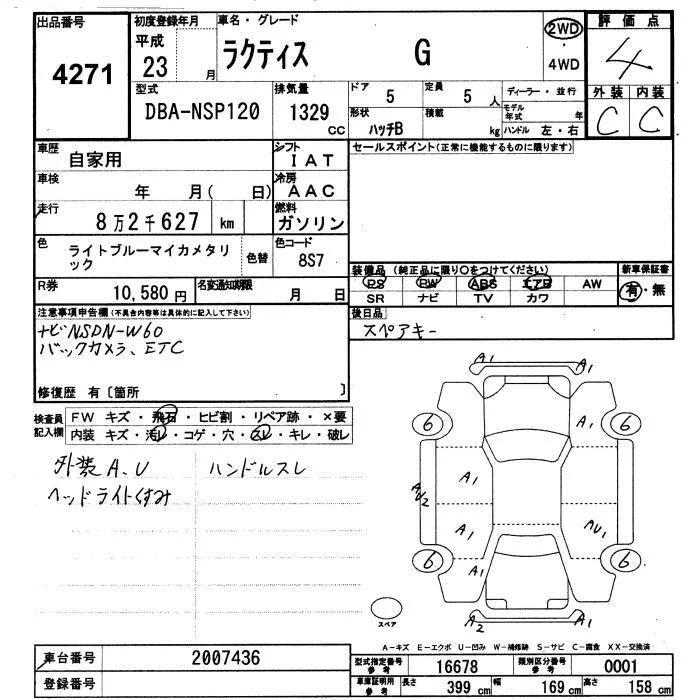 出品番号
4271
初度登録年月
平成
23 月
車名・グレード
ラクティス G
2WD
・
4WD
評価点
4
外装 内装
C C
型式
DBA-NSP120
排気量
1329
CC
ドア
5
定員
5 人
形状
ハッチB
積載
kg
ディーラー・並行
モデル年式 年
ハンドル 左・右
車歴
自家用
シフト
IAT
車検
年 月( 日)
冷房
AAC
走行
8万2千627 km
燃料
ガソリン
色
ライトブルーマイカメタリック
色替
色コード
8S7
R券
10,580 円
名変通知期限
月 日
セールスポイント(正常に機能するものに限ります)
装備品 (純正品に限り○をつけてください)
PS PW ABS エアB AW
SR ナビ TV カワ
新車保証書
有・無
後日品
スペアキー
注意事項申告欄(不具合内容等は具体的に記入して下さい)
ナビNSDN-W60
バックカメラ、ETC
修復歴 有〔箇所 〕
検査員記入欄
FW キズ・飛石・ヒビ割・リペア跡・×要
内装 キズ・汚レ・コゲ・穴・スレ・キレ・破レ
外装A、U ハンドルスレ
ヘッドライトくすみ
A1 A1
6 A1 6
A1
A U2
A1 AU1
6 A1 6
A2 A1
スペア
A-キズ E-エクボ U-凹み W-補修跡 S-サビ C-腐食 XX-交換済
車台番号
2007436
登録番号
型式指定番号
参考
16678
類別区分番号
参考
0001
車庫証明用
参考
長さ
399 cm
幅
169 cm
高さ
158 cm